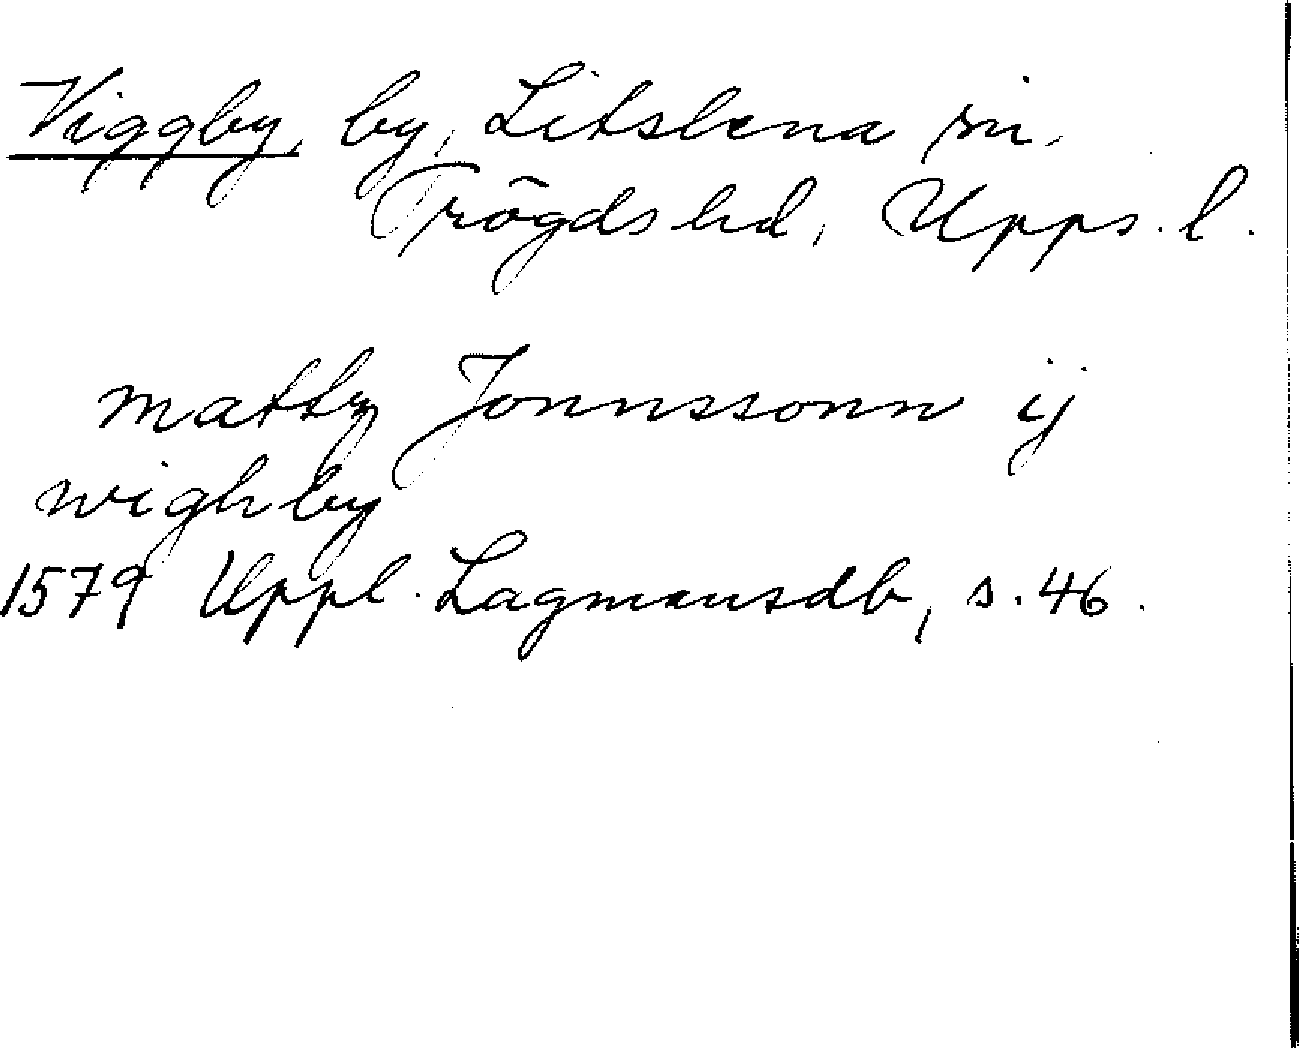 Viggby, by, Litslena sn,
Trögds hd, Upps. l.
Jonnssonn ij
wighby
1579 Uppl. Lagmansdb, s. 46.